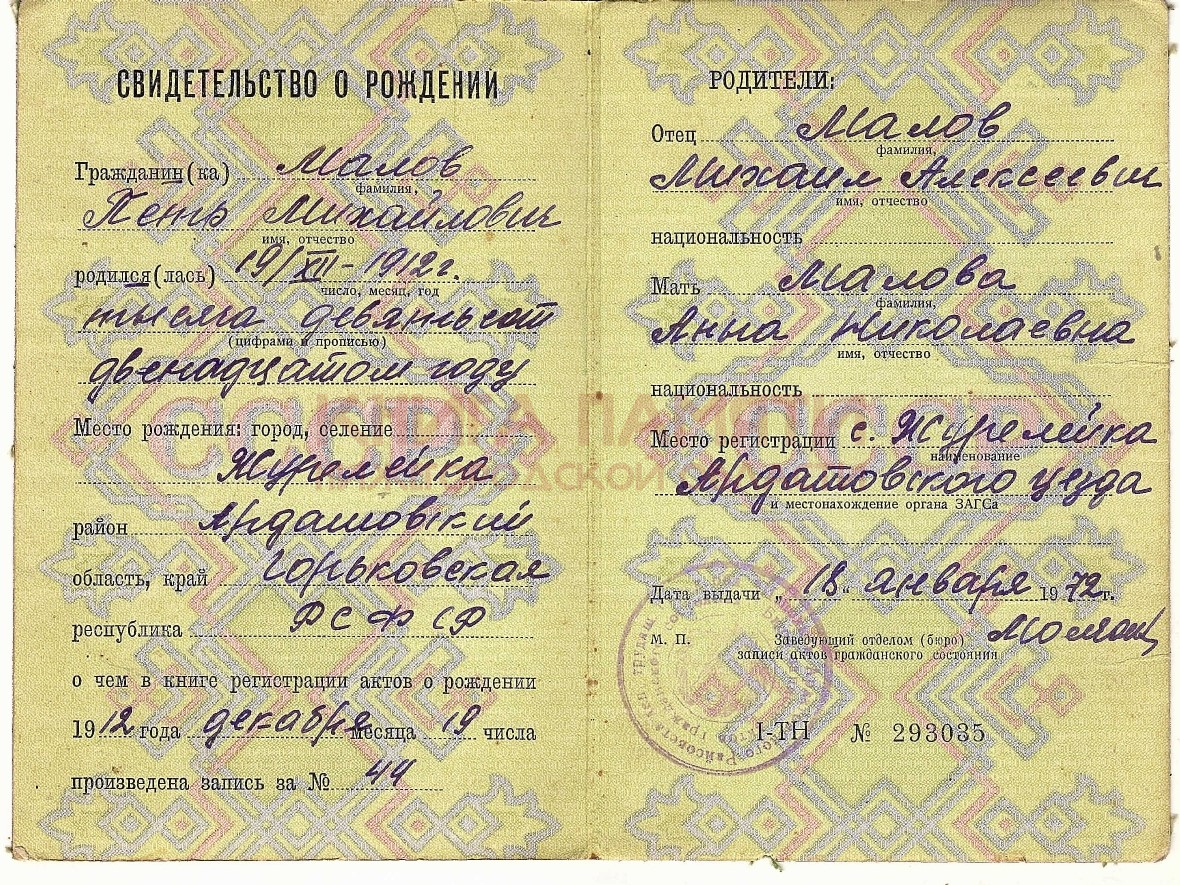 СВИДЕТЕЛЬСТВО О РОЖДЕНИИ
Гражданин(ка) Малов
фамилия,
Пень Михайлович
имя, отчество
родился(лась) 19/XII-1912г.
число, месяц, год
тысяча девятьсот
(цифрами и прописью)
двенадцатом году
Место рождения: город, селение
Журелейка
район Ардатовский
область, край Горьковская
республика РСФСР
о чем в книге регистрации актов о рождении
1912 года декабря месяца 19 числа
произведена запись за № 44
РОДИТЕЛИ:
Отец Малов
фамилия,
Михаил Алексеевич
имя, отчество
национальность
Мать Малова
фамилия,
Анна Николаевна
имя, отчество
национальность
Место регистрации с. Журелейка
наименование
Ардатовского уезда
и местонахождение органа ЗАГСа
Дата выдачи „18" января 1972г.
М. П. Заведующий отделом (бюро)
записи актов гражданского состояния
I-ТН № 293035
СССР СССР
КНИГА ПАМЯТИ